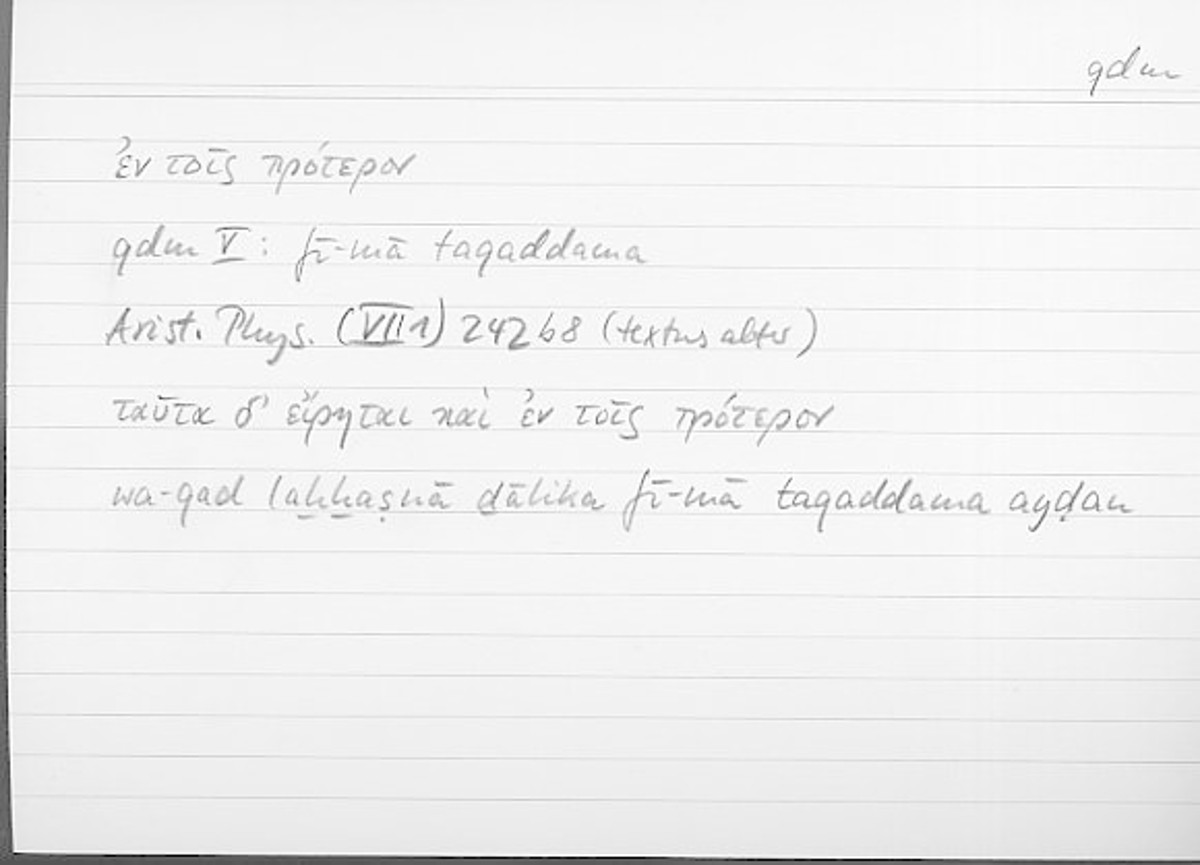 qdm
ἐν τοῖς πρότερον
qdm V: fī-mā taqaddama
Arist. Phys. (VII 1) 242 b8 (textus alter)
ταῦτα δ' εἴρηται καὶ ἐν τοῖς πρότερον
wa-qad laḫḫaṣnā ḏālika fī-mā taqaddama ayḍan